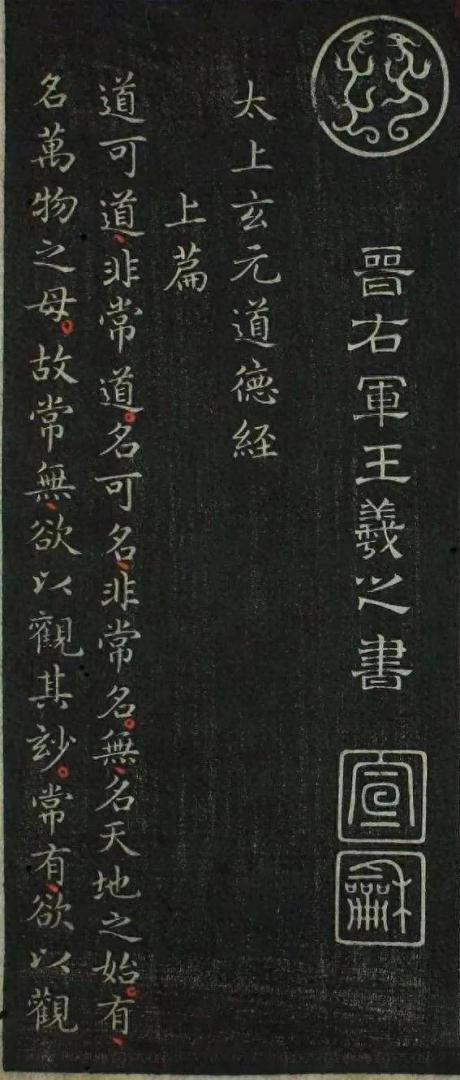 晉右軍王羲之書
宣
龢
太上玄元道德經
上篇
道可道、非常道。名可名、非常名。無、名天地之始。有、
名萬物之母。故常無、欲以觀其玅。常有、欲以觀